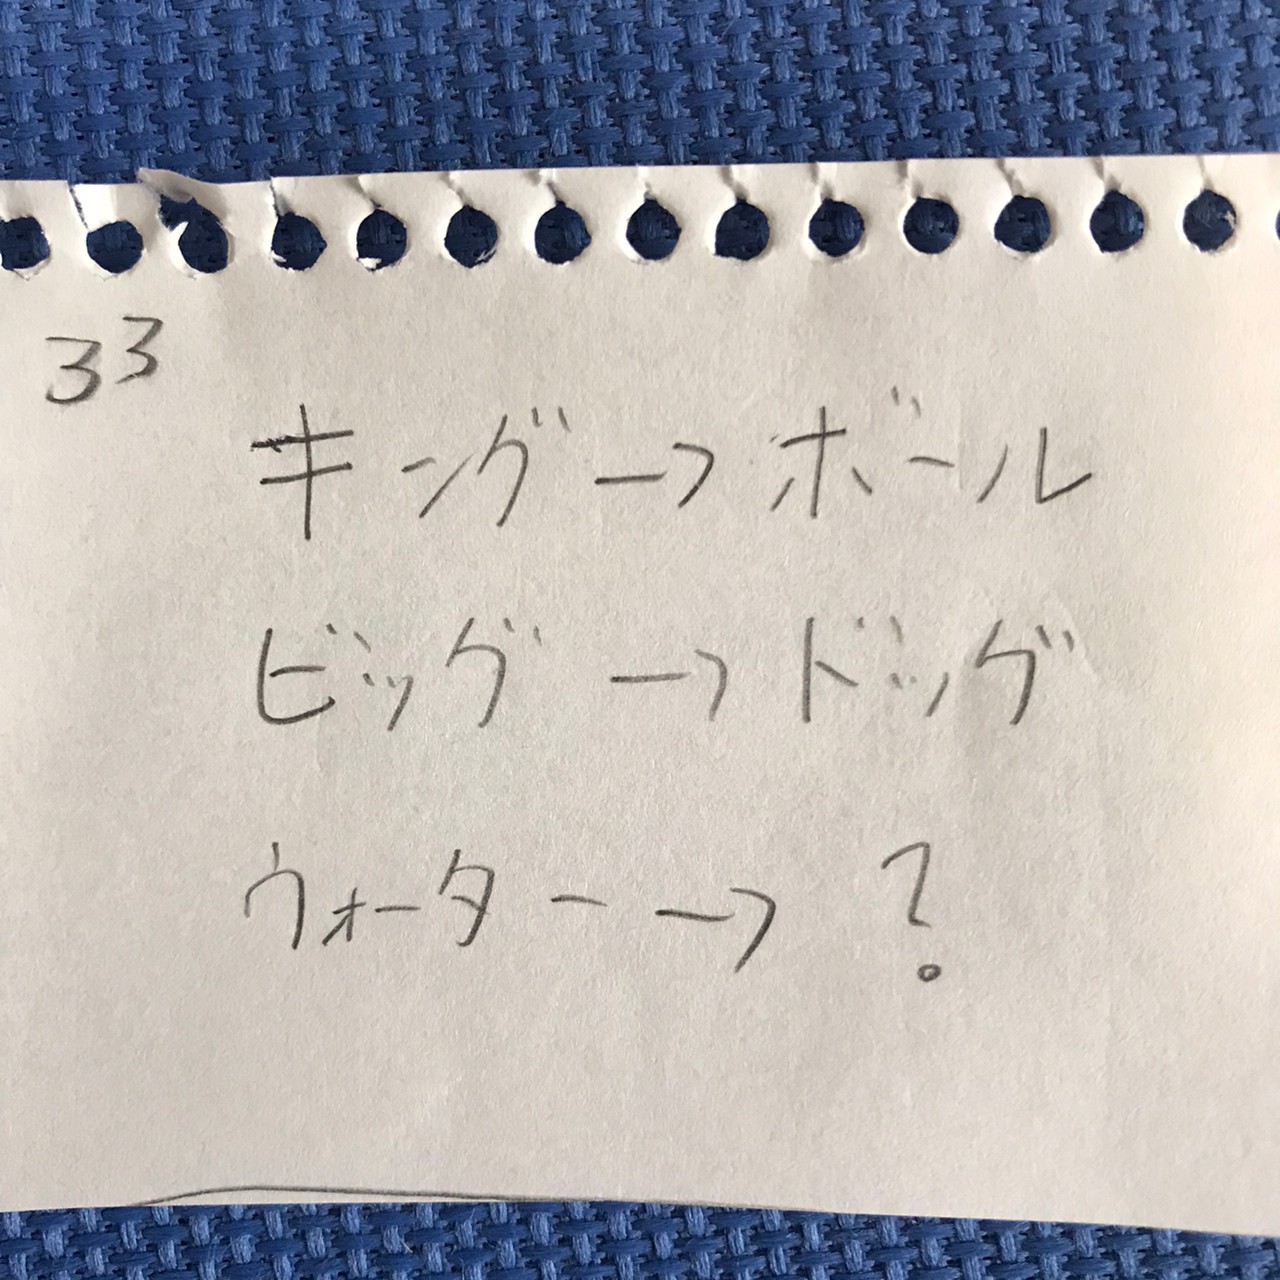 33
キング→ボール
ビッグ→ドッグ
ウォーター→?